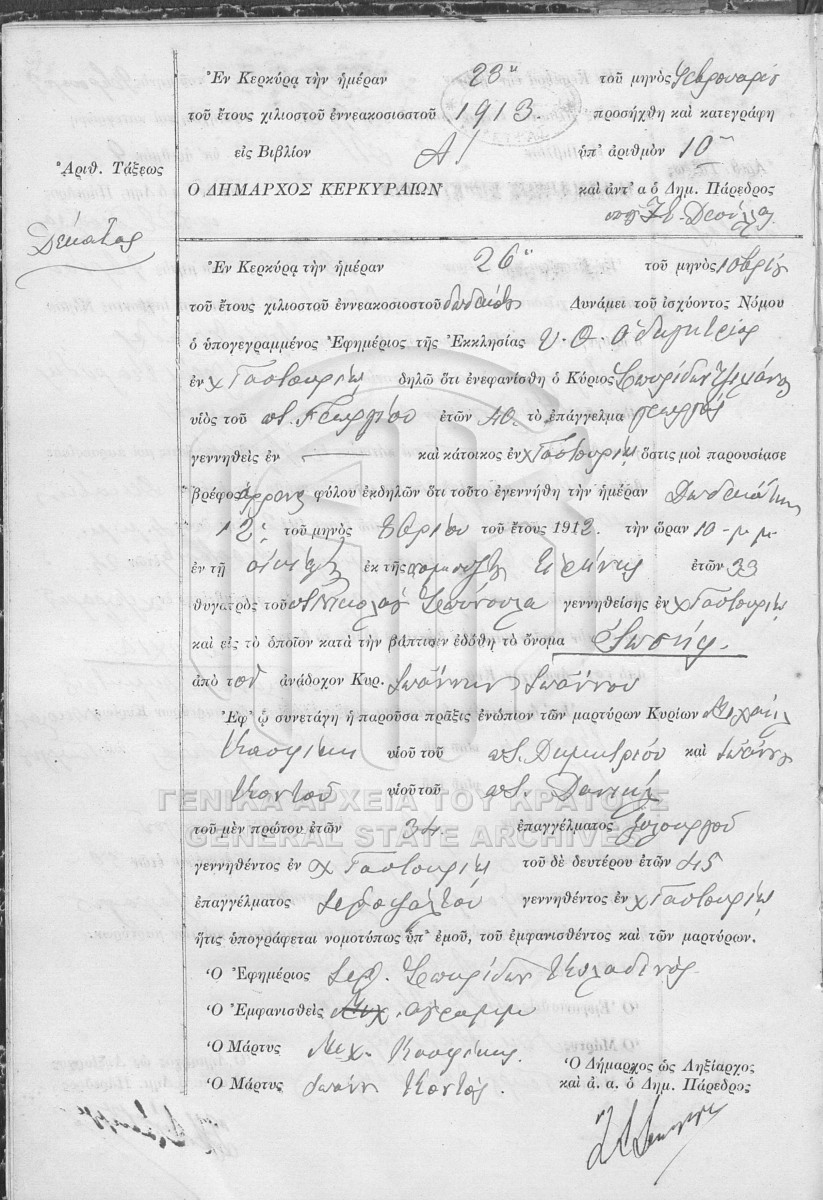 Ἐν Κερκύρᾳ τὴν ἡμέραν 23η τοῦ μηνὸς Φεβρουαρίου
τοῦ ἔτους χιλιοστοῦ ἐννεακοσιοστοῦ 1913. προσήχθη καὶ κατεγράφη
εἰς Βιβλίον Α/ ὑπ' ἀριθμὸν 10
Ἀριθ. Τάξεως
Ο ΔΗΜΑΡΧΟΣ ΚΕΡΚΥΡΑΙΩΝ καὶ ἀντ' α ὁ Δημ. Πάρεδρος
Δέκατος
Ἐν Κερκύρᾳ τὴν ἡμέραν 26η τοῦ μηνὸς 10βρίου
τοῦ ἔτους χιλιοστοῦ ἐννεακοσιοστοῦ Δυνάμει τοῦ ἰσχύοντος Νόμου
ὁ ὑπογεγραμμένος Ἐφημέριος τῆς Ἐκκλησίας Υ. Θ. Οδηγητρίας
ἐν χ Γαστουρίῳ δηλῶ ὅτι ἐνεφανίσθη ὁ Κύριος Σπυρίδων
υἱὸς τοῦ ποτ. Γεωργίου ἐτῶν 40. τὸ ἐπάγγελμα γεωργός
γεννηθεὶς ἐν — καὶ κάτοικος ἐν χ Γαστουρίῳ ὅστις μοὶ παρουσίασε
βρέφος ἄρρενος φύλου ἐκδηλῶν ὅτι τοῦτο ἐγεννήθη τὴν ἡμέραν Δωδεκάτην
12 τοῦ μηνὸς 8βρίου τοῦ ἔτους 1912. τὴν ὥραν 10 - μ μ
ἐν τῇ οἰκίᾳ ἐκ τῆς Εἰρήνης ἐτῶν 33
θυγατρὸς τοῦ ποτ Νικολάου γεννηθείσης ἐν χ Γαστουρίῳ
καὶ εἰς τὸ ὁποῖον κατὰ τὴν βάπτισιν ἐδόθη τὸ ὄνομα Ἰωσήφ.
ἀπὸ τὸν ἀνάδοχον Κυρ. Ἰωάννην Ἰωάννου
Ἐφ' ᾧ συνετάγη ἡ παροῦσα πρᾶξις ἐνώπιον τῶν μαρτύρων Κυρίων Μιχαήλ
υἱοῦ τοῦ ποτ. Δημητρίου καὶ Ἰωάννου
Κοντοῦ υἱοῦ τοῦ ποτ. Δανιήλ
ΓΕΝΙΚΑ ΑΡΧΕΙΑ ΤΟΥ ΚΡΑΤΟΥΣ
τοῦ μὲν πρώτου ἐτῶν 34. ἐπαγγέλματος ξυλουργοῦ
GENERAL STATE ARCHIVES
γεννηθέντος ἐν χ Γαστουρίῳ τοῦ δὲ δευτέρου ἐτῶν 45
ἐπαγγέλματος ἱεροψάλτου γεννηθέντος ἐν χ Γαστουρίῳ
ἥτις ὑπογράφεται νομοτύπως ὑπ' ἐμοῦ, τοῦ ἐμφανισθέντος καὶ τῶν μαρτύρων.
Ὁ Ἐφημέριος Ἱερ. Σπυρίδων
Ὁ Ἐμφανισθεὶς ἀγράμμ
Ὁ Μάρτυς Μιχ.
Ὁ Μάρτυς Ἰωάνν Κοντός.
Ὁ Δήμαρχος ὡς Ληξίαρχος
καὶ ἀ. α. ὁ Δημ. Πάρεδρος